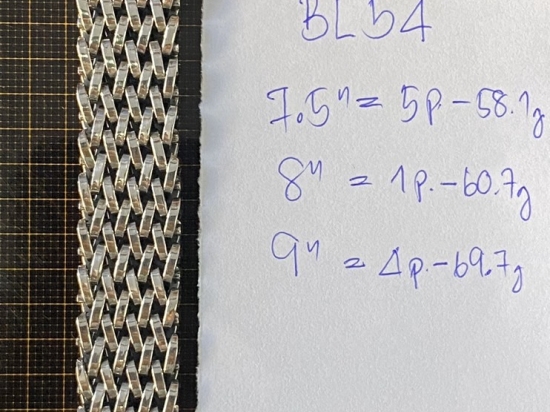 BL54
7.5" = 5p - 58.1g
8" = 1p. - 60.7g
9" = 1p. - 69.7g